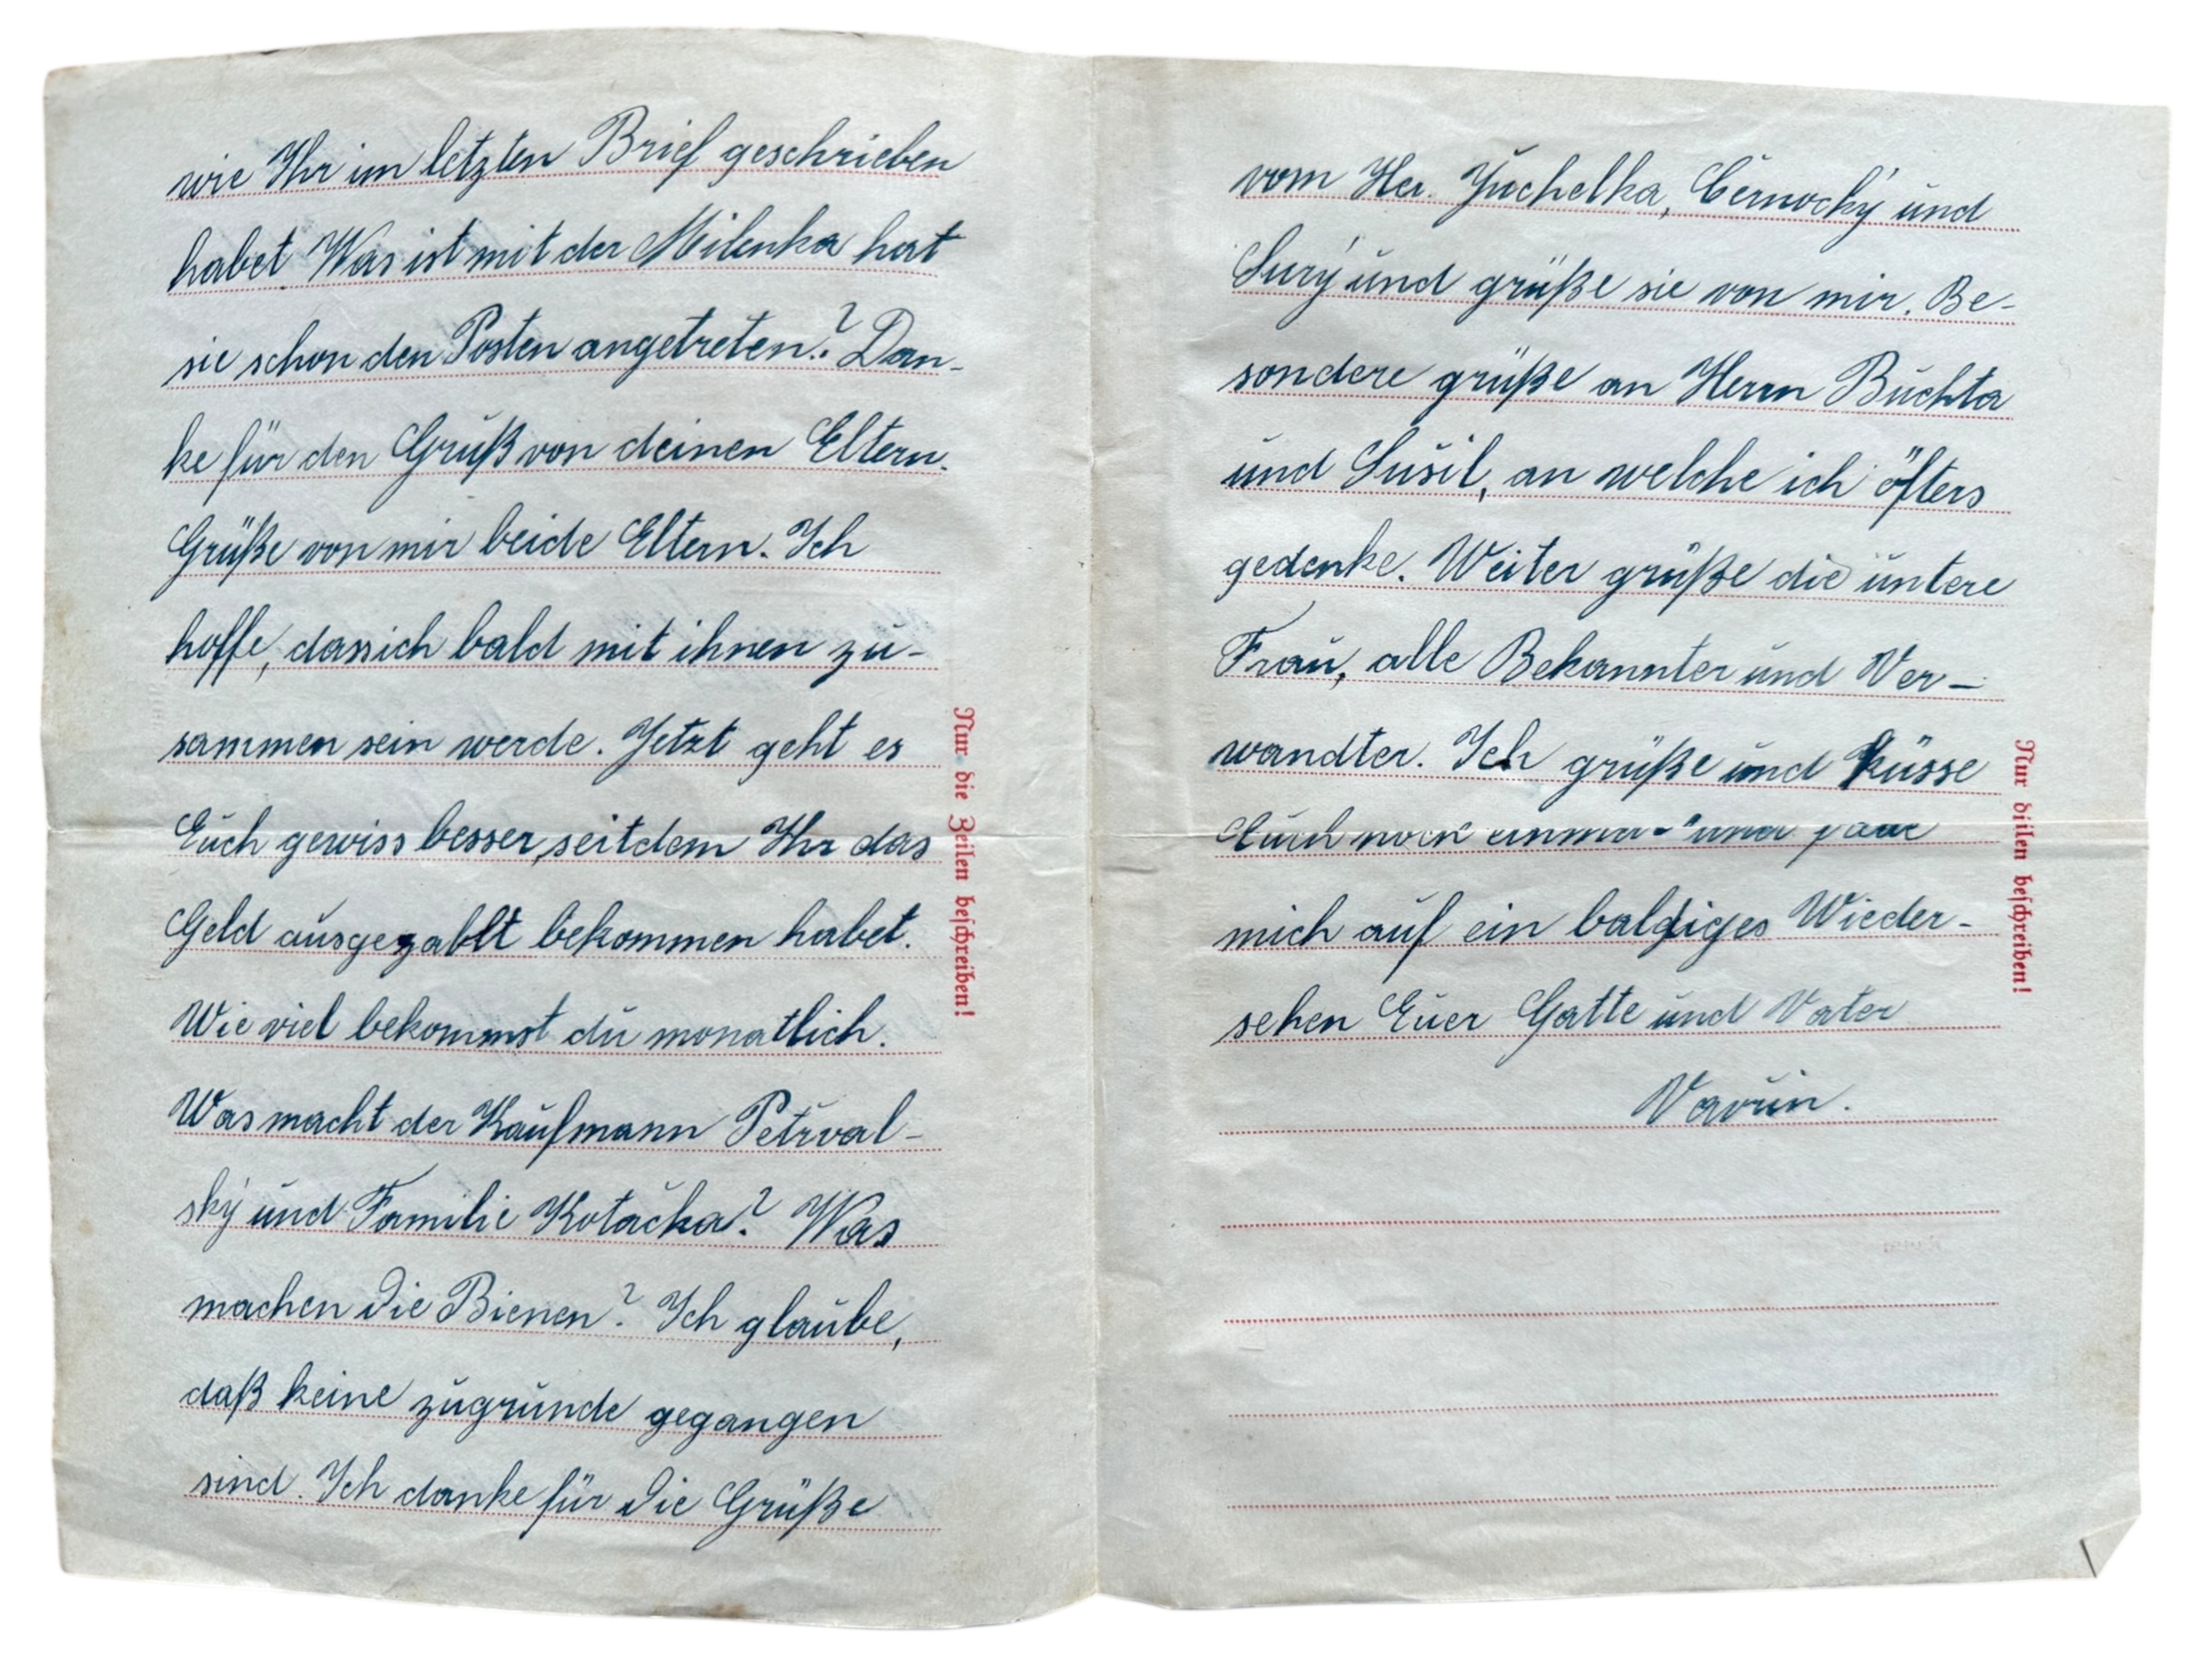 wie Ihr im letzten Brief geschrieben
habet. Was ist mit der Milenka hat
sie schon den Posten angetreten? Dan-
ke für den Gruß von deinen Eltern.
Grüße von mir beide Eltern. Ich
hoffe, dass ich bald mit ihnen zu-
sammen sein werde. Jetzt geht es
Euch gewiss besser, seitdem Ihr das
Geld ausgezahlt bekommen habet.
Wie viel bekommst du monatlich.
Was macht der Kaufmann Petřval-
ský und Familie Kotačka? Was
machen die Bienen? Ich glaube,
daß keine zugrunde gegangen
sind. Ich danke für die Grüße
Nur die Zeilen beschreiben!
vom Her. Juchelka, Černocký und
Surý und grüße sie von mir. Be-
sondere grüße an Herrn Buchta
und Sušil, an welche ich öfters
gedenke. Weiter grüße die untere
Frau, alle Bekannter und Ver-
wandter. Ich grüße und küsse
Euch noch und
mich auf ein baldiges Wieder-
sehen Euer Gatte und Vater
Vavřin.
Nur beschreiben!